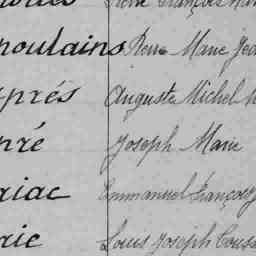 Pierre François
poulains Pierre Marie
prés Auguste Michel
pré Joseph Marie
riac Emmanuel François
ric Louis Joseph